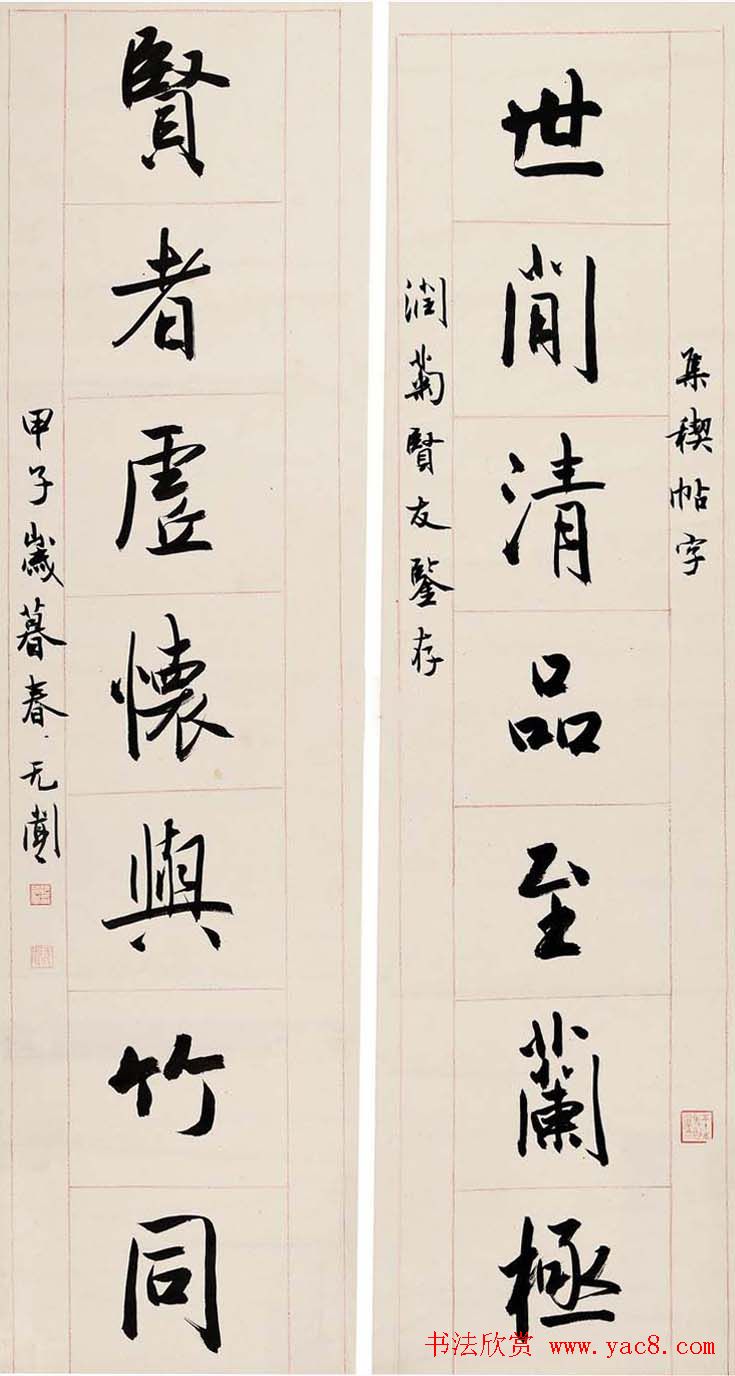 集稧帖字
世間清品至蘭極
潤菊賢友鑒存
賢者虛懷與竹同
甲子歲暮春 无聞
书法欣赏 www.yac8.com